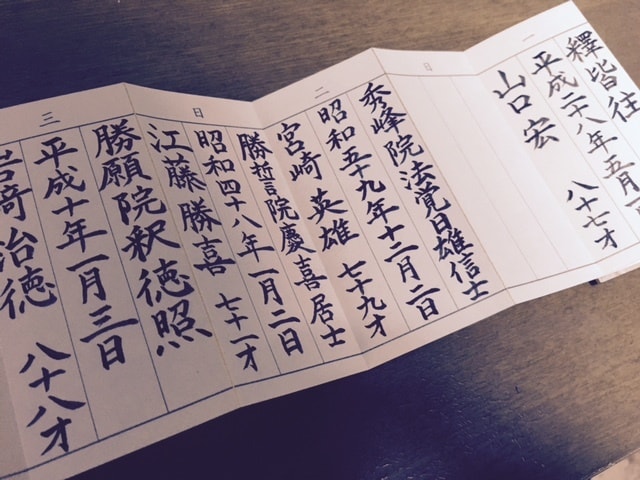 一
釋皆往
平成二八年五月一
山口宏 八十七才
日
二
秀峰院法覚日雄信士
昭和五十九年十二月二日
宮崎英雄 七十九才
日
勝誓院慶喜居士
昭和四十八年一月二日
江藤勝喜 七十一才
三
勝願院釈徳照
平成十年一月三日
岩崎治徳 八十八才